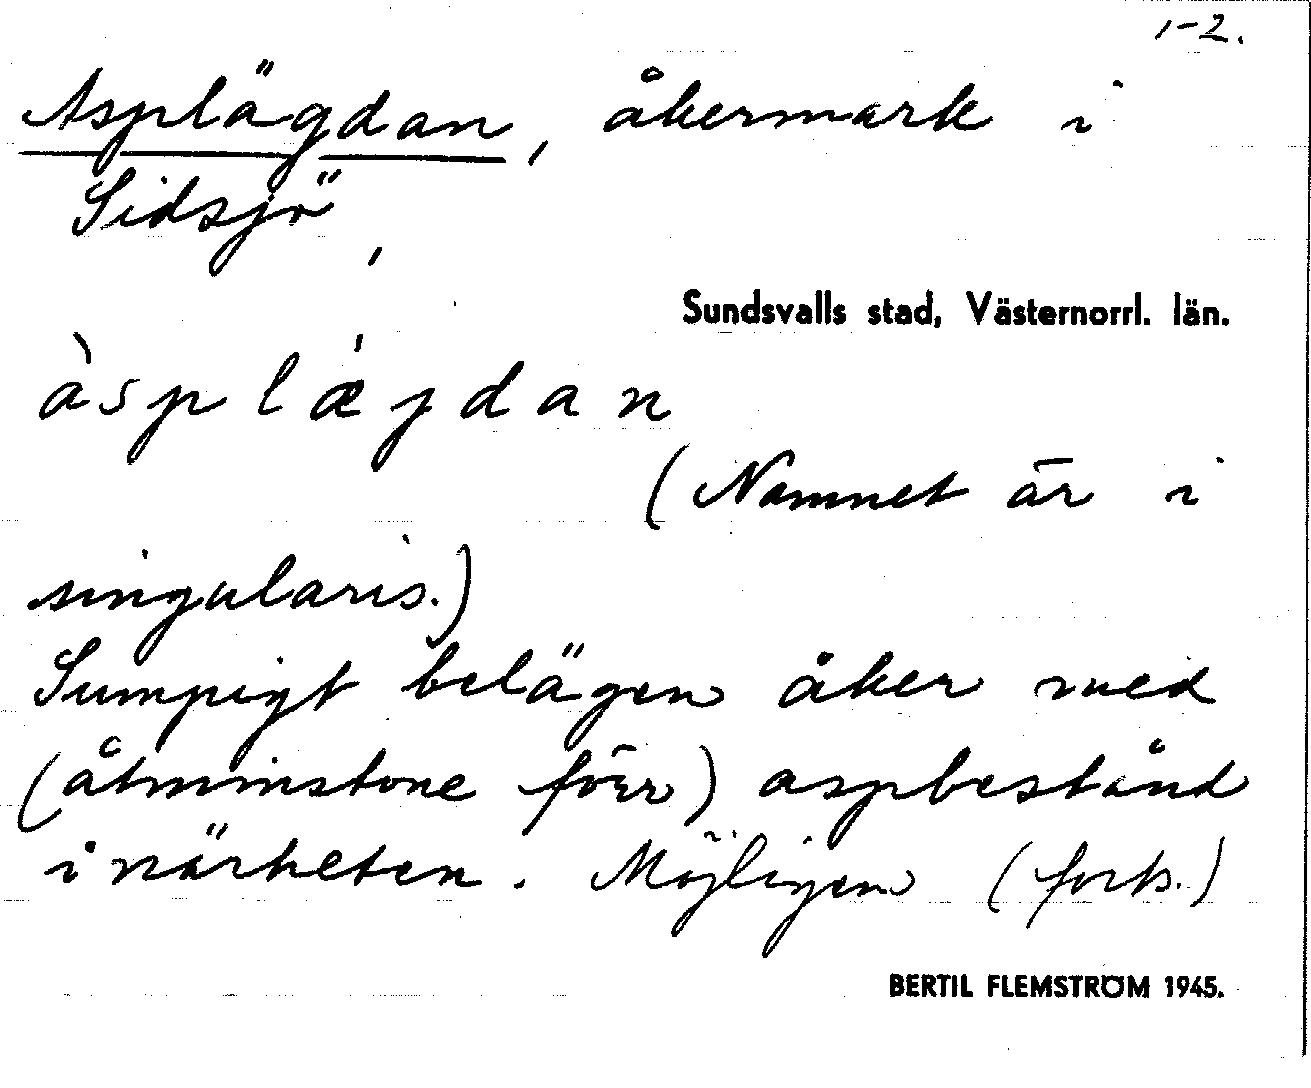 1-2.
Asplägdan, åkermark i
Sidsjö,
Sundsvalls stad, Västernorrl. län.
àsplǽjdan
(Namnet är i
singularis.)
Sumpigt belägen åker med
(åtminstone förr) aspbestånd
i närheten. Möjligen (forts.)
BERTIL FLEMSTRÖM 1945.